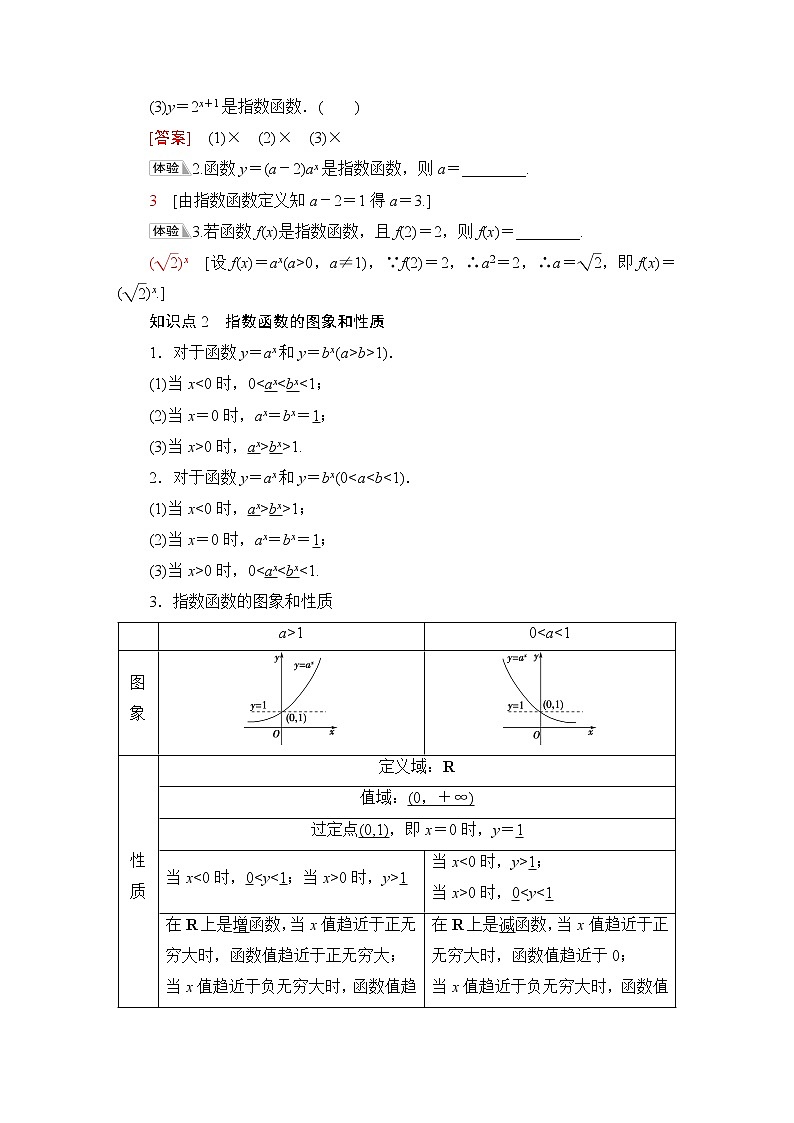 (3)y＝2ˣ⁺¹是指数函数．(　　)
[答案]　(1)×　(2)×　(3)×
体验2.函数 y＝(a－2)aˣ是指数函数，则 a＝________.
3　[由指数函数定义知 a－2＝1 得 a＝3.]
体验3.若函数 f(x)是指数函数，且 f(2)＝2，则 f(x)＝________.
(√2)ˣ　[设 f(x)＝aˣ(a>0，a≠1)，∵f(2)＝2，∴a²＝2，∴a＝√2，即 f(x)＝
(√2)ˣ.]
知识点 2　指数函数的图象和性质
1．对于函数 y＝aˣ和 y＝bˣ(a>b>1)．
(1)当 x<0 时，0<aˣ<bˣ<1；
(2)当 x＝0 时，aˣ＝bˣ＝1；
(3)当 x>0 时，aˣ>bˣ>1.
2．对于函数 y＝aˣ和 y＝bˣ(0<a<b<1)．
(1)当 x<0 时，aˣ>bˣ>1；
(2)当 x＝0 时，aˣ＝bˣ＝1；
(3)当 x>0 时，0<aˣ<bˣ<1.
3．指数函数的图象和性质
a>1
0<a<1
图
象
y
y=aˣ
y=1
(0,1)
O
x
y=aˣ
y
y=1
(0,1)
O
x
性
质
定义域：R
值域：(0，＋∞)
过定点(0,1)，即 x＝0 时，y＝1
当 x<0 时，0<y<1；当 x>0 时，y>1
当 x<0 时，y>1；
当 x>0 时，0<y<1
在 R 上是增函数，当 x 值趋近于正无
穷大时，函数值趋近于正无穷大；
当 x 值趋近于负无穷大时，函数值趋
在 R 上是减函数，当 x 值趋近于正
无穷大时，函数值趋近于 0；
当 x 值趋近于负无穷大时，函数值